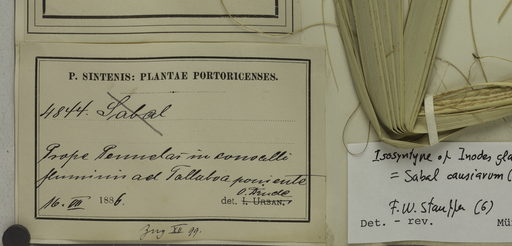 P. SINTENIS: PLANTAE PORTORICENSES.
4844. Sabal
Prope Penuelas in convalli
fluminis ad Tallaboa
16. 1886. det. I. URBAN.
XII 99.
Isosyntype of Inodes gla
= Sabal causiarum (
F.W. Stauffer (6)
Det. - rev. Mü